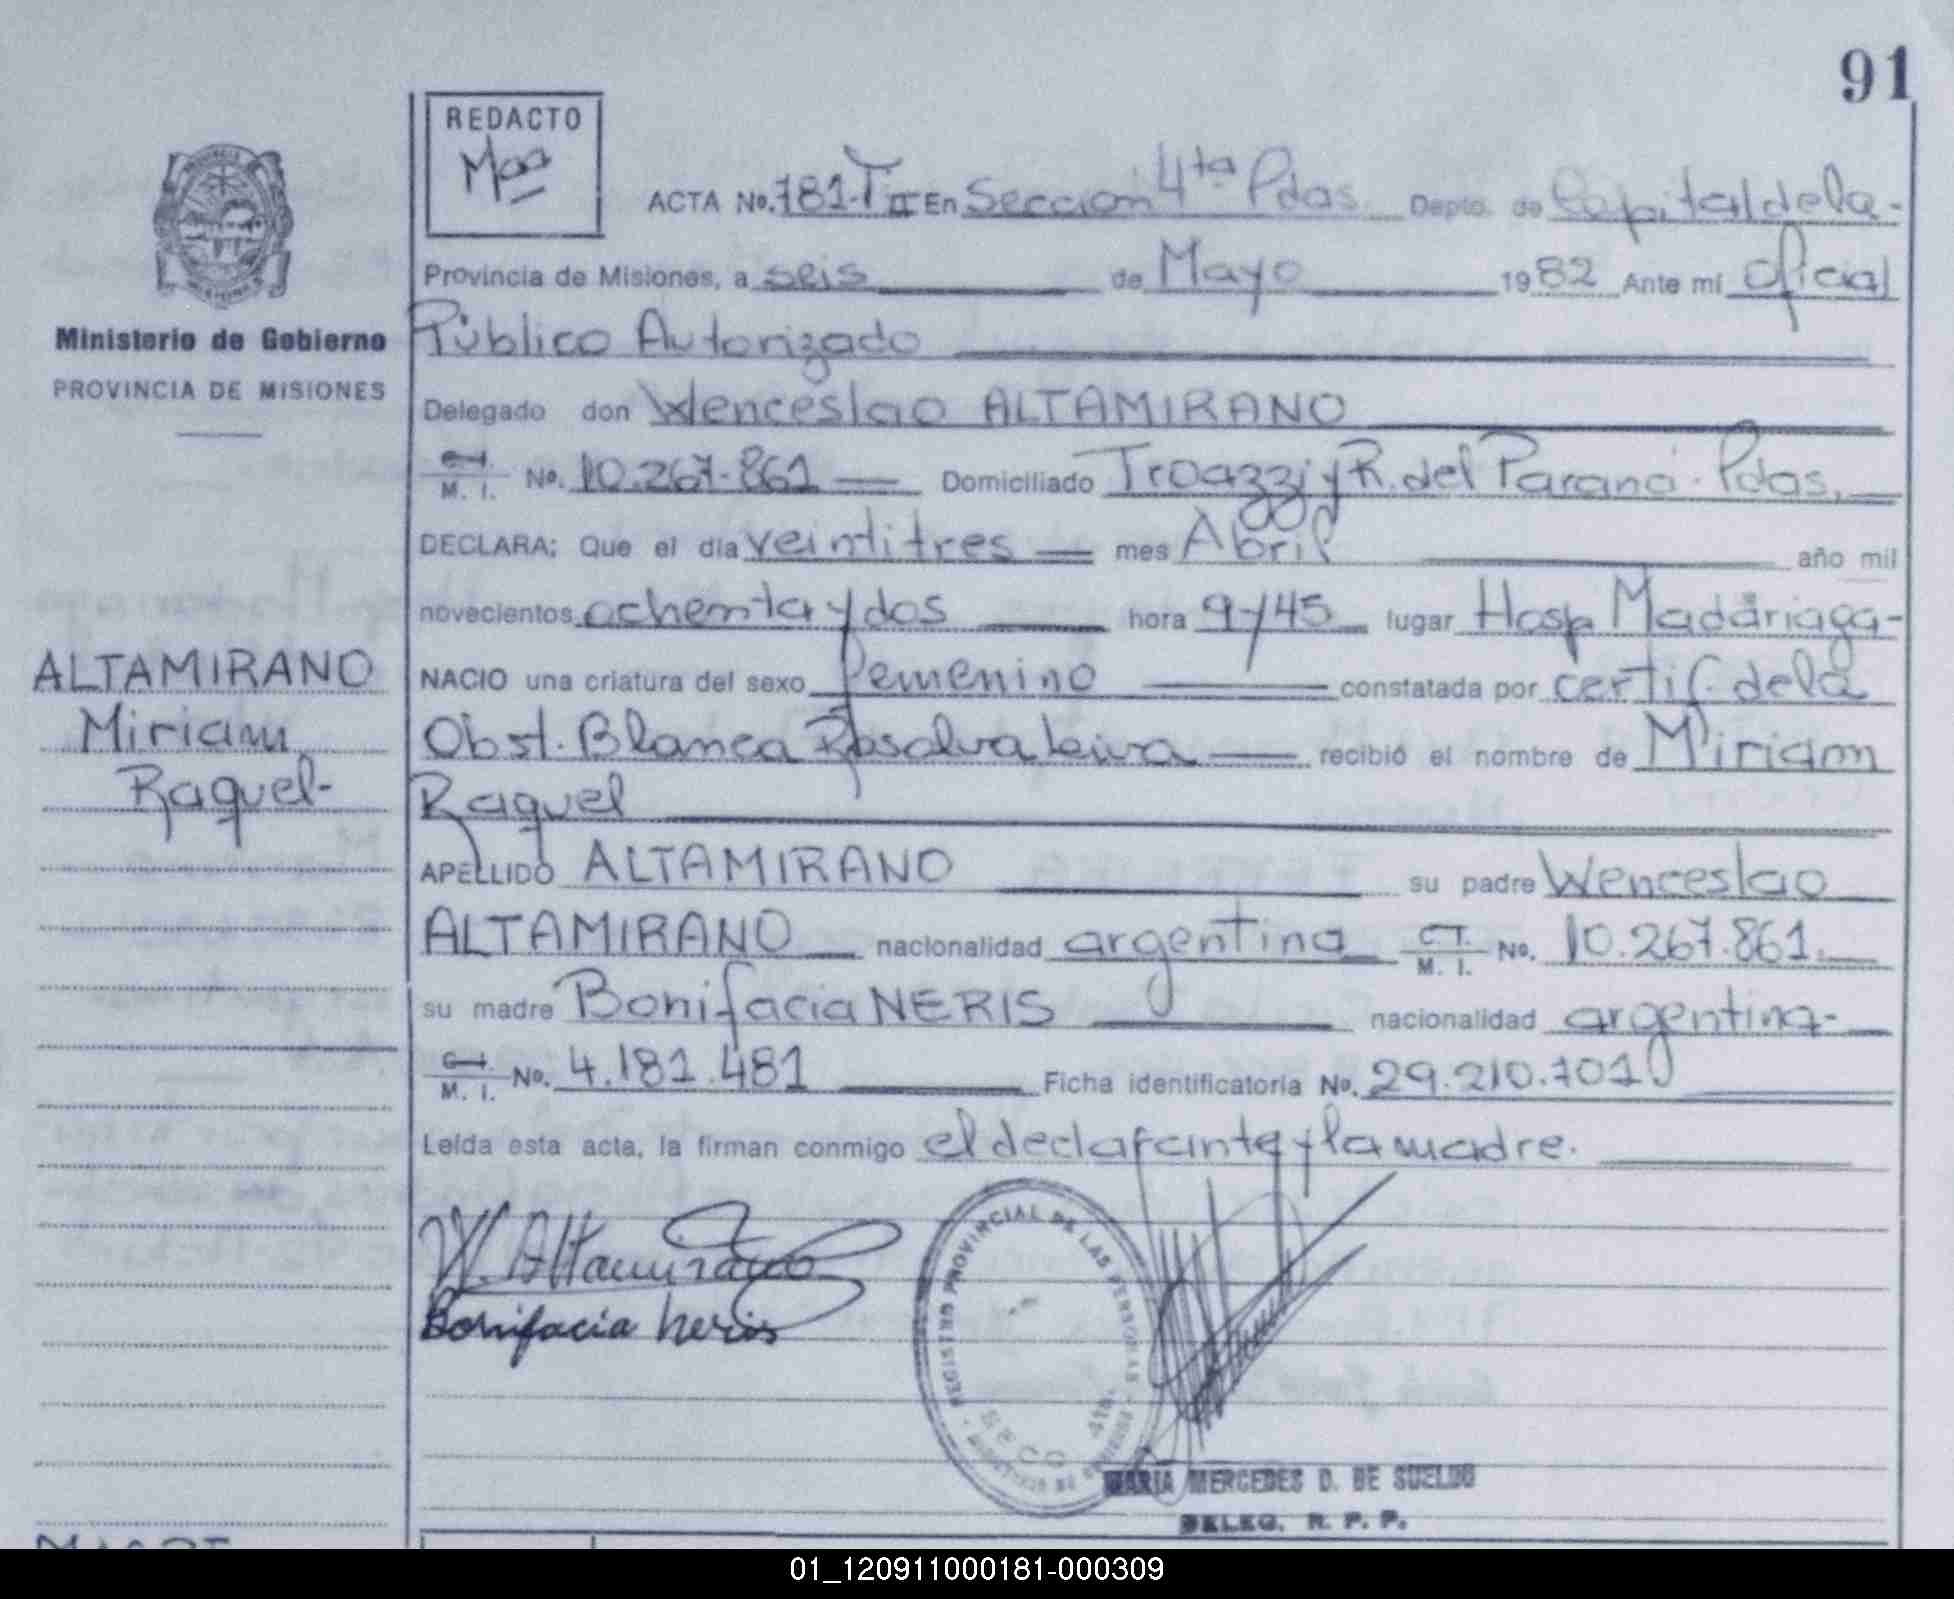 91
REDACTO
ACTA No. 781-T II En Seccion 4ta Pdas. Depto. de Capital de la-
Provincia de Misiones, a seis de Mayo 1982 Ante mí Oficial
Ministerio de Gobierno
PROVINCIA DE MISIONES
Público Autorizado
Delegado don Wenceslao ALTAMIRANO
C.I. M. I. No. 10.267.861 Domiciliado y R. del Paraná. Pdas.
DECLARA: Que el día veintitres mes Abril año mil
novecientos ochenta y dos hora 9y45 lugar Hosp Madariaga-
ALTAMIRANO
Miriam
Raquel-
NACIO una criatura del sexo femenino constatada por certif. de la
Obst. Blanca Rosalva Leiva recibió el nombre de Miriam
Raquel
APELLIDO ALTAMIRANO su padre Wenceslao
ALTAMIRANO nacionalidad argentina C.I. M. I. No. 10.267.861.
su madre Bonifacia NERIS nacionalidad argentina-
C.I. M. I. No. 4.181.481 Ficha identificatoria No. 29.210.701
Leída esta acta, la firman conmigo el declarante y la madre.
W. Altamirano
Bonifacia Neris
REGISTRO PROVINCIAL DE LAS PERSONAS
SECC 4ta.
MARIA MERCEDES D. DE SUELDO
DELEG. R. P. P.
01_120911000181-000309